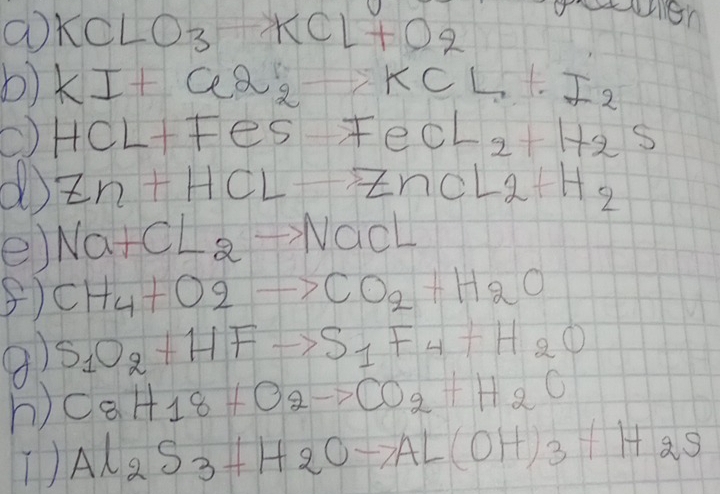 a) KCLO3 → KCL + O2
b) KI + Cl2 → KCL + I2
c) HCL + Fes → FeCL2 + H2S
d) Zn + HCL → ZnCL2 + H2
e) Na + CL2 → NaCL
f) CH4 + O2 → CO2 + H2O
g) S1O2 + HF → S1F4 + H2O
h) C8H18 + O2 → CO2 + H2O
i) Al2S3 + H2O → AL(OH)3 + H2S